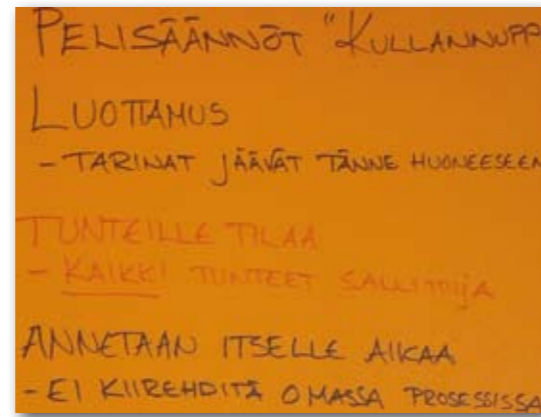 PELISÄÄNNÖT "KULLANNUPP
LUOTTAMUS
- TARINAT JÄÄVÄT TÄNNE HUONEESEEN
TUNTEILLE TILAA
- KAIKKI TUNTEET SALLITTUJA
ANNETAAN ITSELLE AIKAA
- EI KIIREHDITÄ OMASSA PROSESSISSA